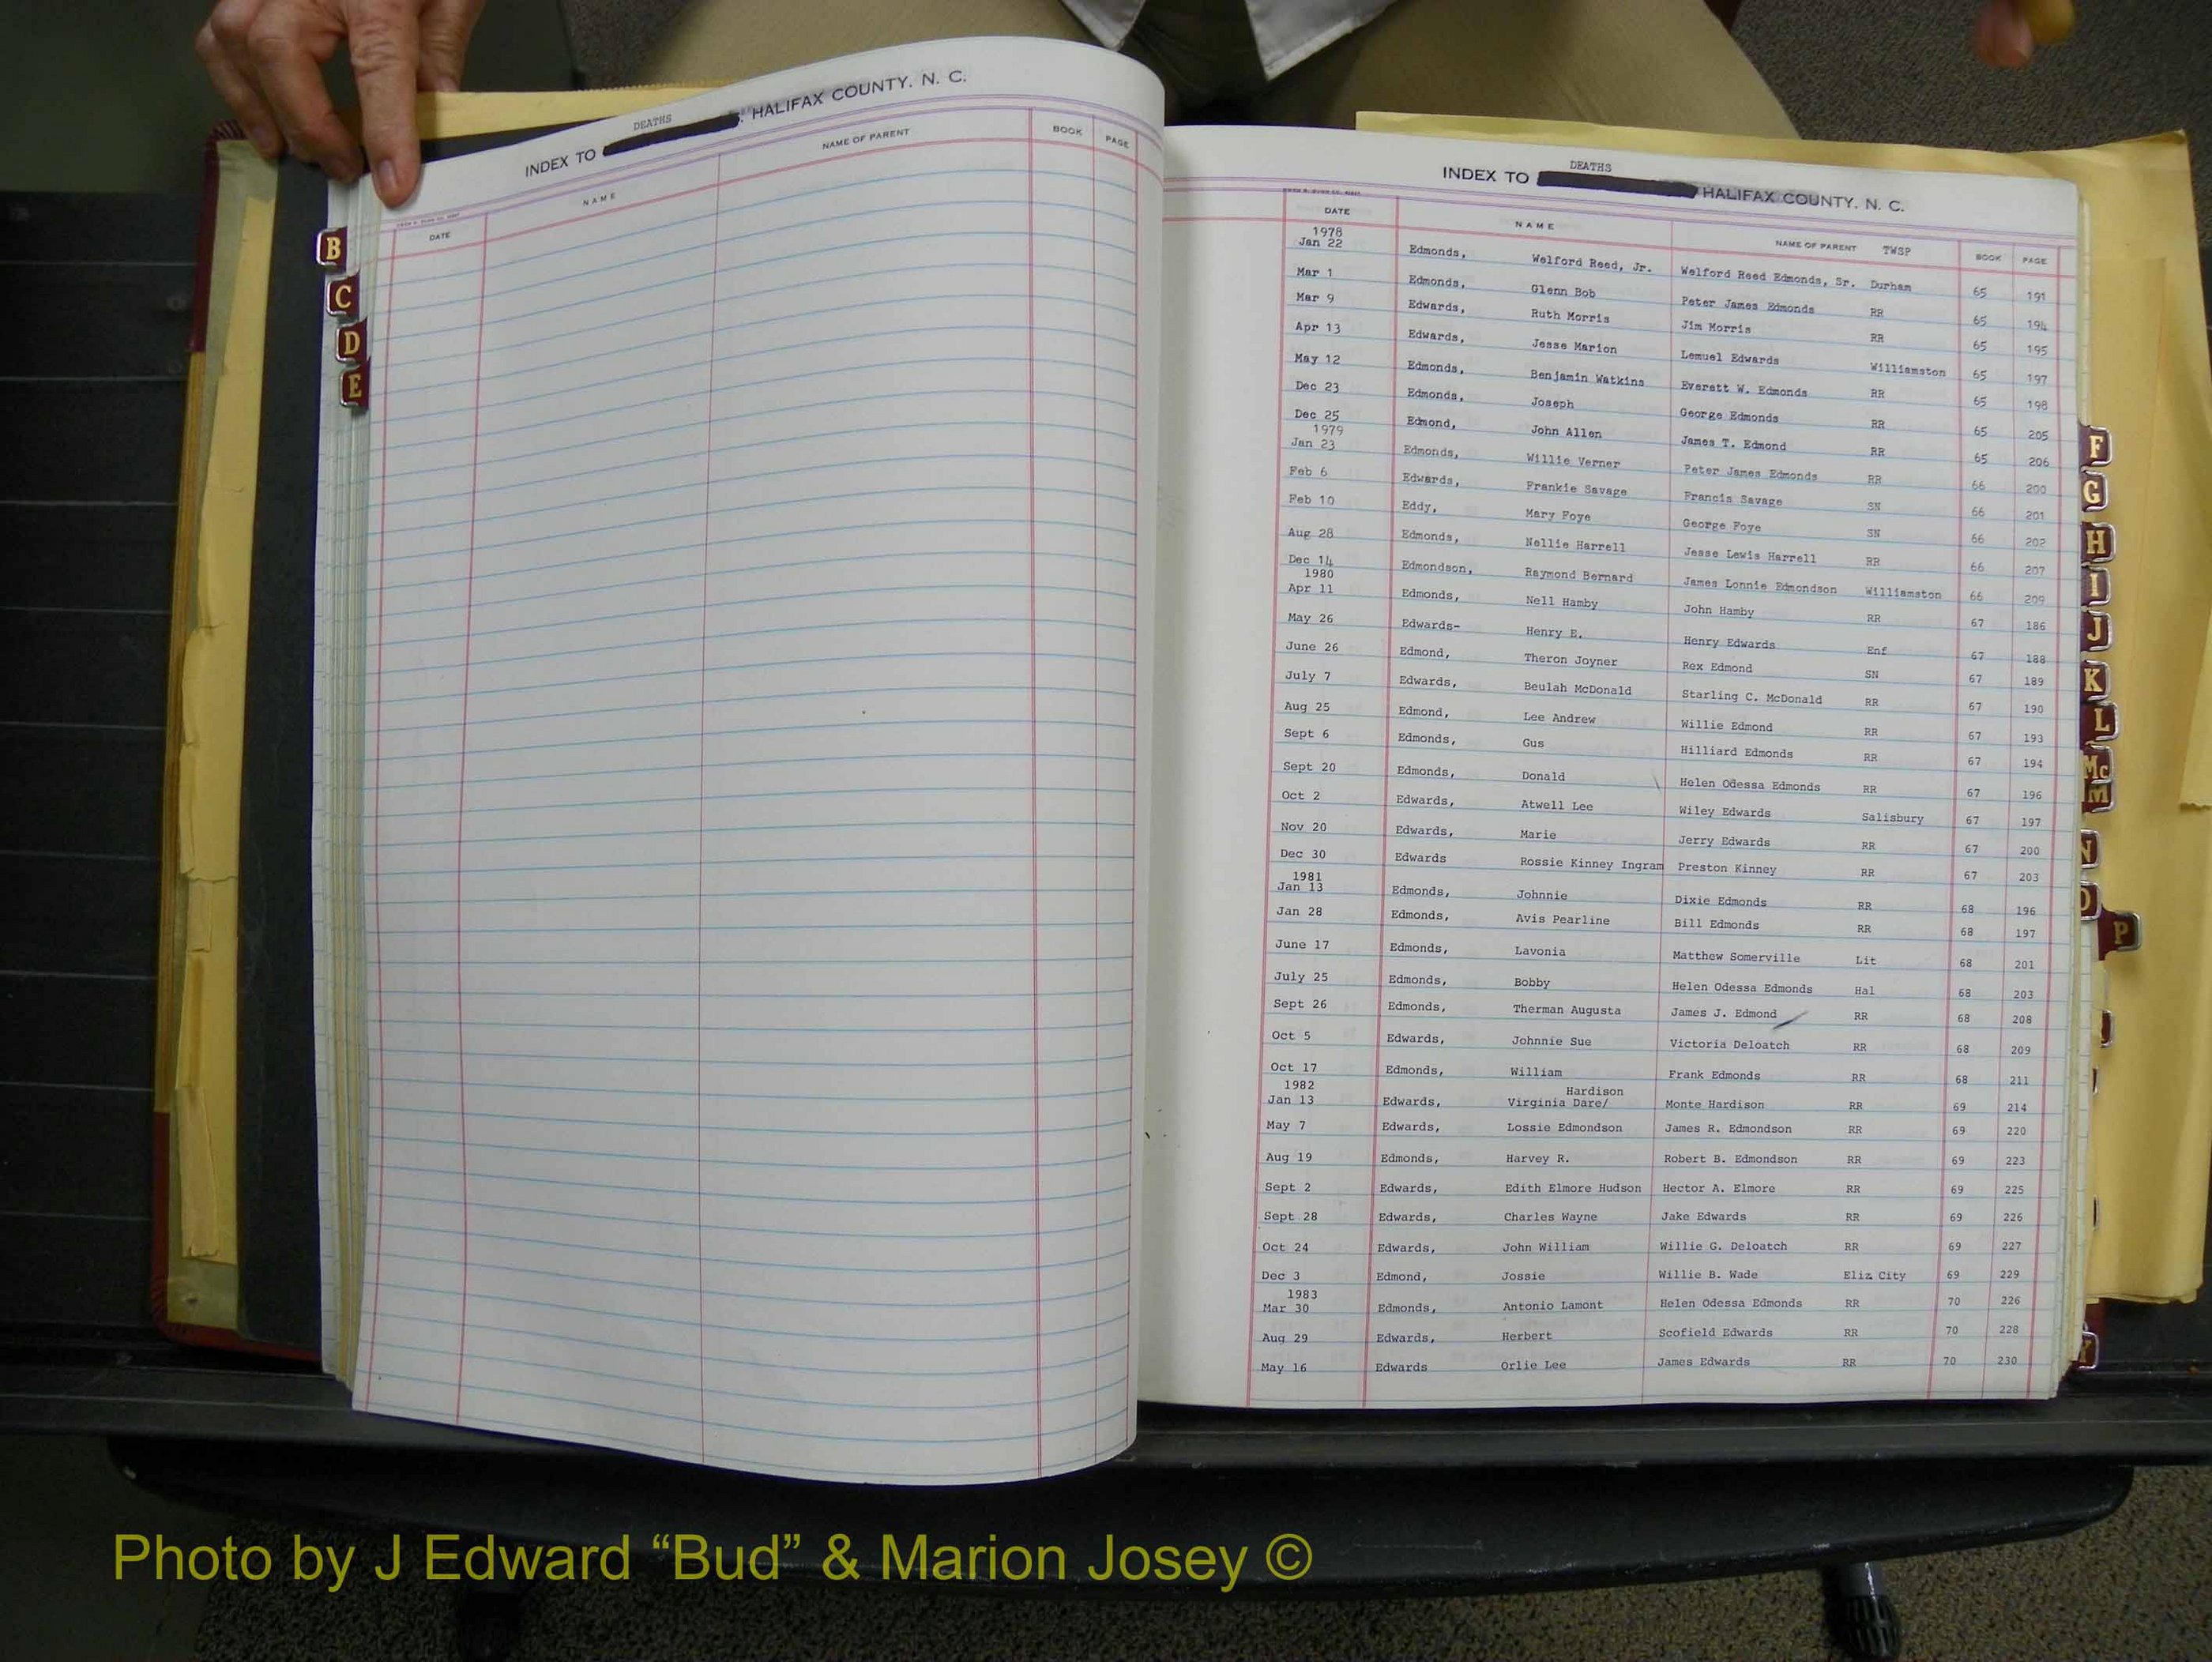 DEATHS
INDEX TO HALIFAX COUNTY, N. C.
DATE NAME NAME OF PARENT BOOK PAGE
B
C
D
E
DEATHS
INDEX TO HALIFAX COUNTY, N. C.
DATE NAME NAME OF PARENT TWSP BOOK PAGE
1978
Jan 22 Edmonds, Welford Reed, Jr. Welford Reed Edmonds, Sr. Durham 65 191
Mar 1 Edmonds, Glenn Bob Peter James Edmonds RR 65 194
Mar 9 Edwards, Ruth Morris Jim Morris RR 65 195
Apr 13 Edwards, Jesse Marion Lemuel Edwards Williamston 65 197
May 12 Edmonds, Benjamin Watkins Everett W. Edmonds RR 65 198
Dec 23 Edmonds, Joseph George Edmonds RR 65 205
Dec 25 Edmond, John Allen James T. Edmond RR 65 206
1979
Jan 23 Edmonds, Willie Verner Peter James Edmonds RR 66 200
Feb 6 Edwards, Frankie Savage Francis Savage SN 66 201
Feb 10 Eddy, Mary Foye George Foye SN 66 202
Aug 28 Edmonds, Nellie Harrell Jesse Lewis Harrell RR 66 207
Dec 14 Edmondson, Raymond Bernard James Lonnie Edmondson Williamston 66 209
1980
Apr 11 Edmonds, Nell Hamby John Hamby RR 67 186
May 26 Edwards- Henry E. Henry Edwards Enf 67 188
June 26 Edmond, Theron Joyner Rex Edmond SN 67 189
July 7 Edwards, Beulah McDonald Starling C. McDonald RR 67 190
Aug 25 Edmond, Lee Andrew Willie Edmond RR 67 193
Sept 6 Edmonds, Gus Hilliard Edmonds RR 67 194
Sept 20 Edmonds, Donald Helen Odessa Edmonds RR 67 196
Oct 2 Edwards, Atwell Lee Wiley Edwards Salisbury 67 197
Nov 20 Edwards, Marie Jerry Edwards RR 67 200
Dec 30 Edwards Rossie Kinney Ingram Preston Kinney RR 67 203
1981
Jan 13 Edmonds, Johnnie Dixie Edmonds RR 68 196
Jan 28 Edmonds, Avis Pearline Bill Edmonds RR 68 197
June 17 Edmonds, Lavonia Matthew Somerville Lit 68 201
July 25 Edmonds, Bobby Helen Odessa Edmonds Hal 68 203
Sept 26 Edmonds, Therman Augusta James J. Edmond RR 68 208
Oct 5 Edwards, Johnnie Sue Victoria Deloatch RR 68 209
Oct 17 Edmonds, William Frank Edmonds RR 68 211
1982 Hardison
Jan 13 Edwards, Virginia Dare/ Monte Hardison RR 69 214
May 7 Edwards, Lossie Edmondson James R. Edmondson RR 69 220
Aug 19 Edmonds, Harvey R. Robert B. Edmondson RR 69 223
Sept 2 Edwards, Edith Elmore Hudson Hector A. Elmore RR 69 225
Sept 28 Edwards, Charles Wayne Jake Edwards RR 69 226
Oct 24 Edwards, John William Willie G. Deloatch RR 69 227
Dec 3 Edmond, Jossie Willie B. Wade Eliz City 69 229
1983
Mar 30 Edmonds, Antonio Lamont Helen Odessa Edmonds RR 70 226
Aug 29 Edwards, Herbert Scofield Edwards RR 70 228
May 16 Edwards Orlie Lee James Edwards RR 70 230
F
G
H
I
J
K
L
Mc
M
N
O
P
Y
Photo by J Edward “Bud” & Marion Josey ©